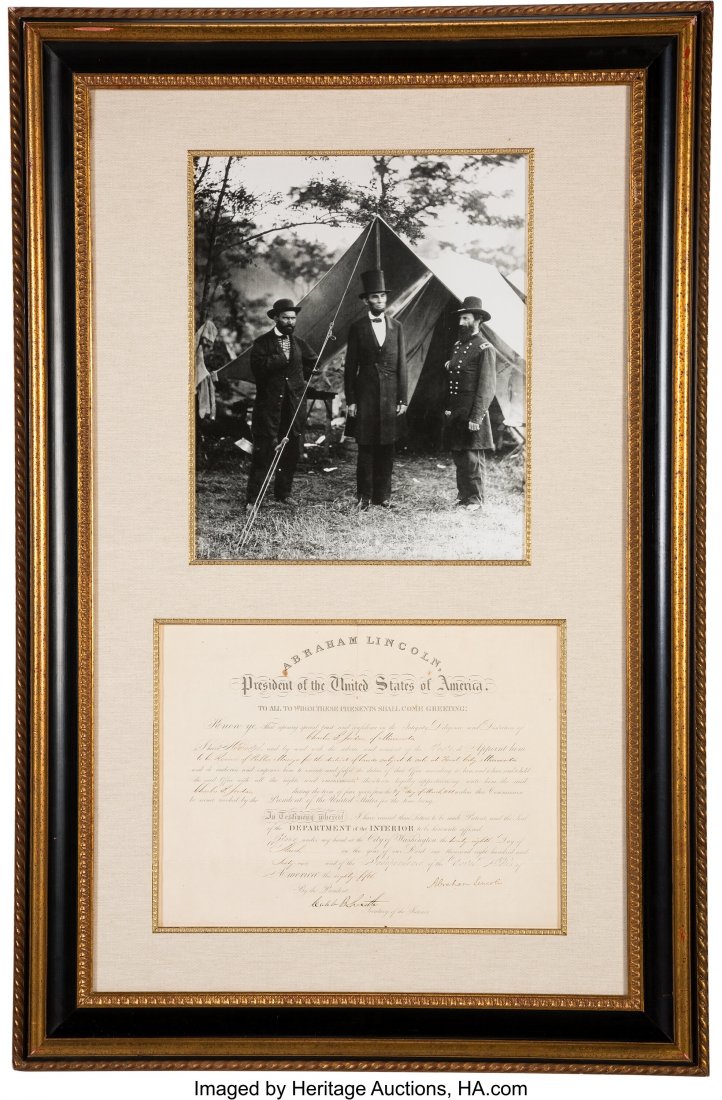 ABRAHAM LINCOLN,
President of the United States of America.
TO ALL TO WHOM THESE PRESENTS SHALL COME GREETING:
Know ye That reposing special trust and confidence in the Integrity, Diligence and Discretion of
Charles of Minnesota
I have and by and with the advice and consent of the do appoint him
to be Receiver of Public Moneys for the district of lands subject to sale at Forest City, Minnesota
and do authorize and empower him to execute and fulfil the duties of that Office according to law and to have and to hold
the said Office with all the rights and emoluments thereunto legally appertaining unto him the said
Charles during the term of four years from the day of March 1861 unless this Commission
be sooner revoked by the President of the United States for the time being.
In Testimony whereof I have caused these Letters to be made Patent, and the Seal
of the DEPARTMENT of the INTERIOR to be hereunto affixed.
Given under my hand at the City of Washington the twenty eighth Day of
March in the year of our Lord one thousand eight hundred and
sixty one and of the Independence of the United States of
America the eighty fifth
By the President
Abraham Lincoln
Caleb B. Smith
Secretary of the Interior
Imaged by Heritage Auctions, HA.com